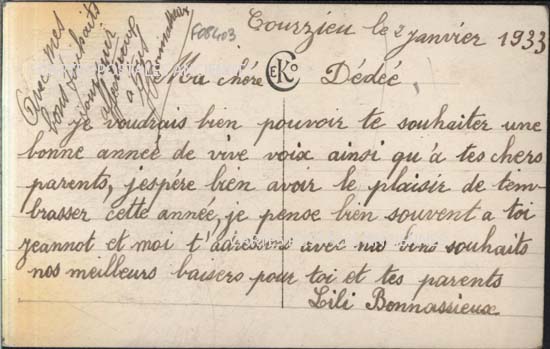 Courzieu le 2 janvier 1933
F08403
Avec mes
bons souhaits
bonjour
a
Bonnassieux
Ma chère Dédée
CEKO
je voudrais bien pouvoir te souhaiter une
bonne année de vive voix ainsi qu'à tes chers
parents, j'espére bien avoir le plaisir de t'em-
brasser cette année, je pense bien souvent a toi
jeannot et moi t'adressons avec nos bons souhaits
nos meilleurs baisers pour toi et tes parents
Lili Bonnassieux